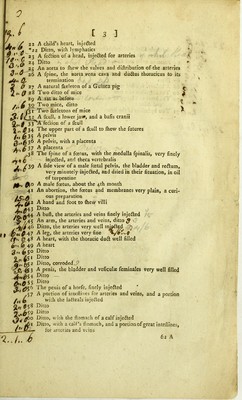 [ 3 ]
21 A child's heart, injected
22 Ditto, with lymphatics
23 A section of a head, injected for arteries
24 Ditto
25 An aorta to shew the valves and distribution of the arteries
26 A spine, the aorta vena cava and ductus thoracicus to its
termination
27 A natural skeleton of a Guinea pig
28 Two ditto of mice
29 A rat as before
30 Two mice, ditto
31 Two skeletons of mice
32 A scull, a lower jaw, and a basis cranii
33 A section of a scull
34 The upper part of a scull to shew the sutures
35 A pelvis
36 A pelvis, with a placenta
37 A placenta
38 The spine of a foetus, with the medulla spinalis, very finely
injected, and theca vertebralis
39 A side view of a male foetal pelvis, the bladder and rectum,
very minutely injected, and dried in their situation, in oil
of turpentine
40 A male foetus, about the 4th month
41 An abortion, the foetus and membranes very plain, a curi-
ous preparation
42 A hand and foot to shew villi
43 A hand
44 Ditto
45 Ditto
A bust, the arteries and veins finely injected
An arm, the arteries and veins, ditto
Ditto, the arteries very well injected
47 A leg, the arteries very fine
48 A heart, with the thoracic duct well filled
49 A heart
50 Ditto
51 Ditto
52 Ditto, corroded
53 A penis, the bladder and vesiculæ seminales very well filled
54 Ditto
55 Ditto
56 The penis of a horse, finely injected
57 A portion of intestines for arteries and veins, and a portion
with the lacteals injected
58 Ditto
59 Ditto
60 Ditto, with the stomach of a calf injected
61 Ditto, with a calf's stomach, and a portion of great intestines,
for arteries and veins
62 A
2..1..6